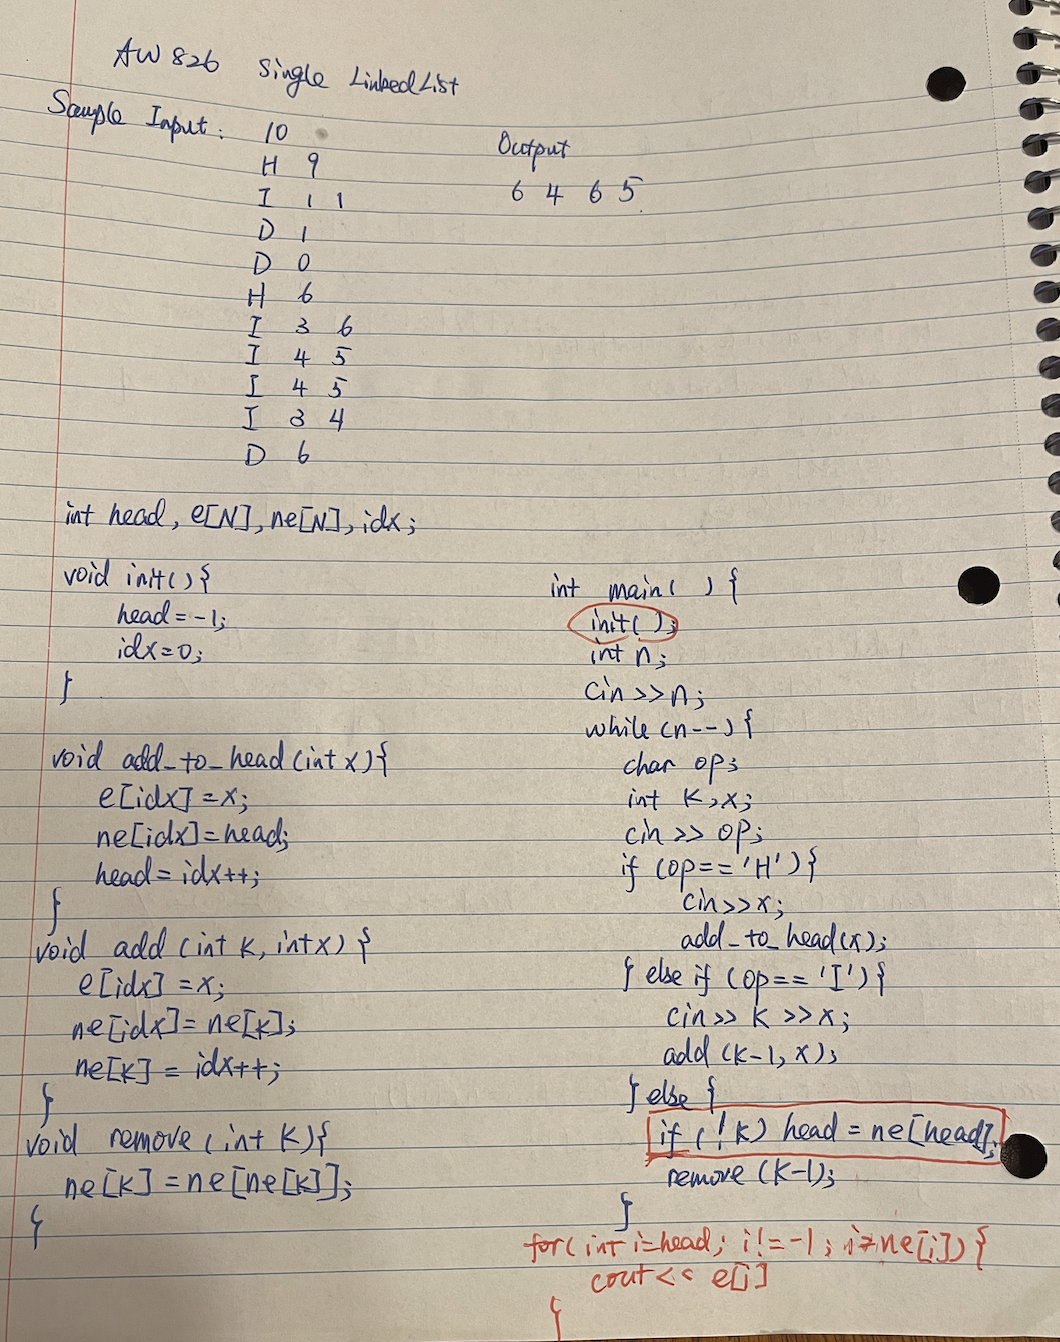 AW 826 Single LinkedList
Sample Input: 10
H 9
I 1 1
D 1
D 0
H 6
I 3 6
I 4 5
I 4 5
I 3 4
D 6
Output
6 4 6 5
int head, e[N], ne[N], idx;
void init(){
head=-1;
idx=0;
}
void add_to_head(int x){
e[idx]=x;
ne[idx]=head;
head=idx++;
}
void add (int k, int x) {
e[idx]=x;
ne[idx]=ne[k];
ne[k] = idx++;
}
void remove (int k){
ne[k]=ne[ne[k]];
}
int main( ) {
init( );
int n;
cin>>n;
while (n--){
char op;
int k,x;
cin >> op;
if (op=='H'){
cin>>x;
add_to_head(x);
} else if (op=='I'){
cin>> k >>x;
add (k-1, x);
} else {
if (!k) head = ne[head];
remove (k-1);
}
for(int i=head; i!=-1; i=ne[i]){
cout<< e[i]
}